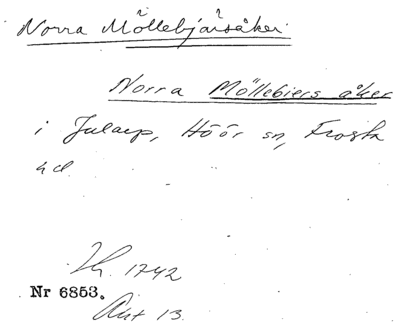 Norra Möllebjärsåker.
Norra Möllebiers åker
i Jularp, Höör sn, Frosta
hd
Nr 6853.
1742
Akt 13